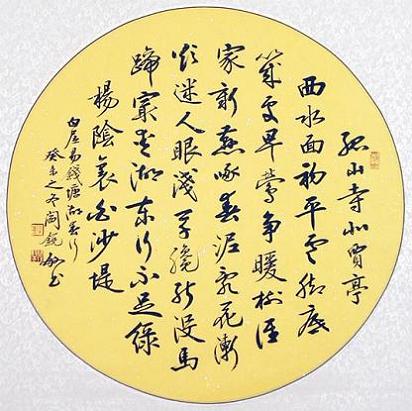 孤山寺北賈亭
西水面初平雲腳低
幾處早鶯爭暖樹誰
家新燕啄春泥亂花漸
欲迷人眼淺草纔能沒馬
蹄最愛湖東行不足綠
楊陰裏白沙堤
白居易錢塘湖春行
癸未之冬閻銳書